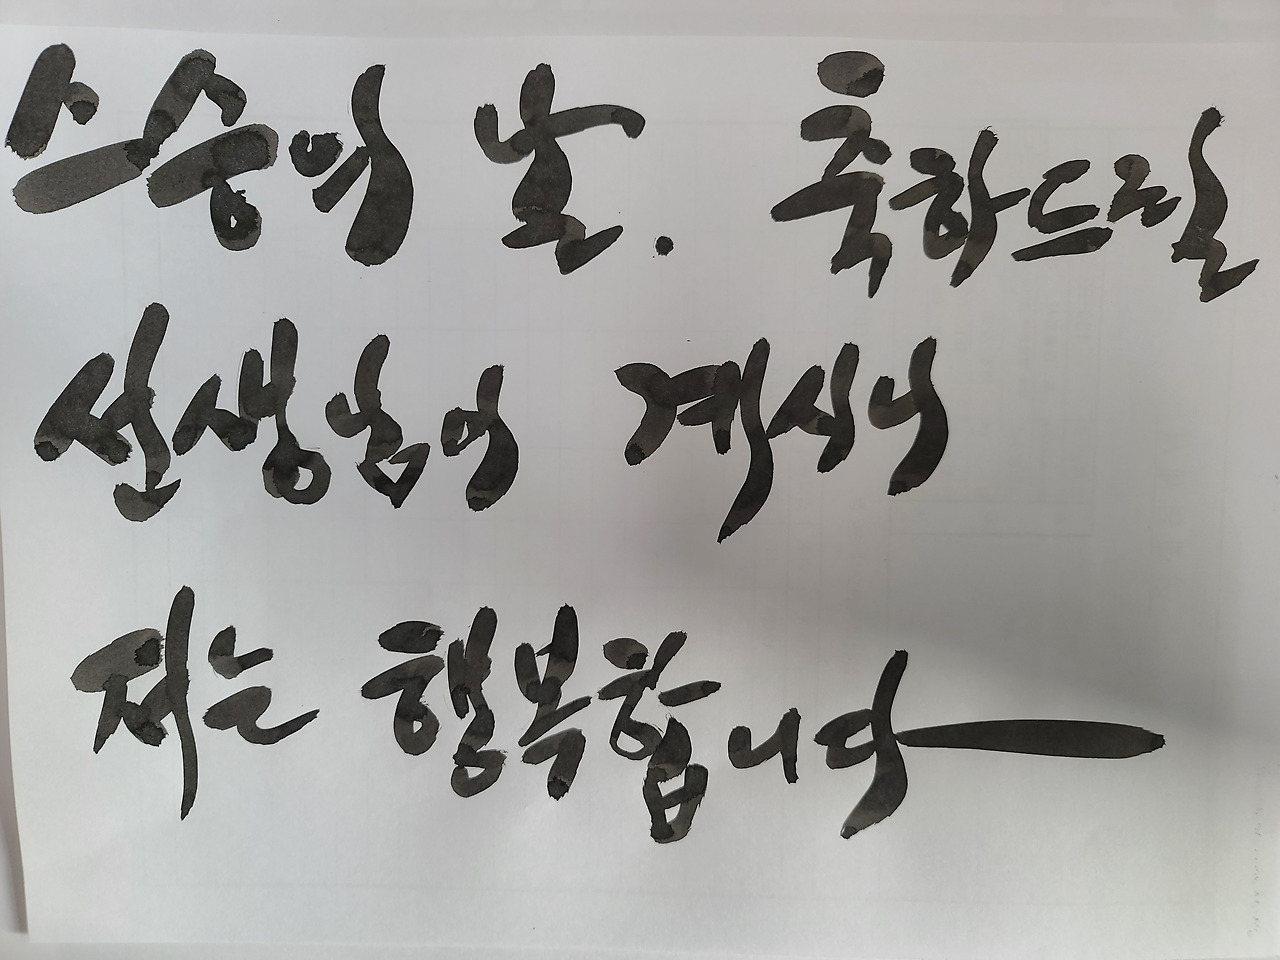 스승의 날. 축하드릴
선생님이 계시니
저는 행복합니다